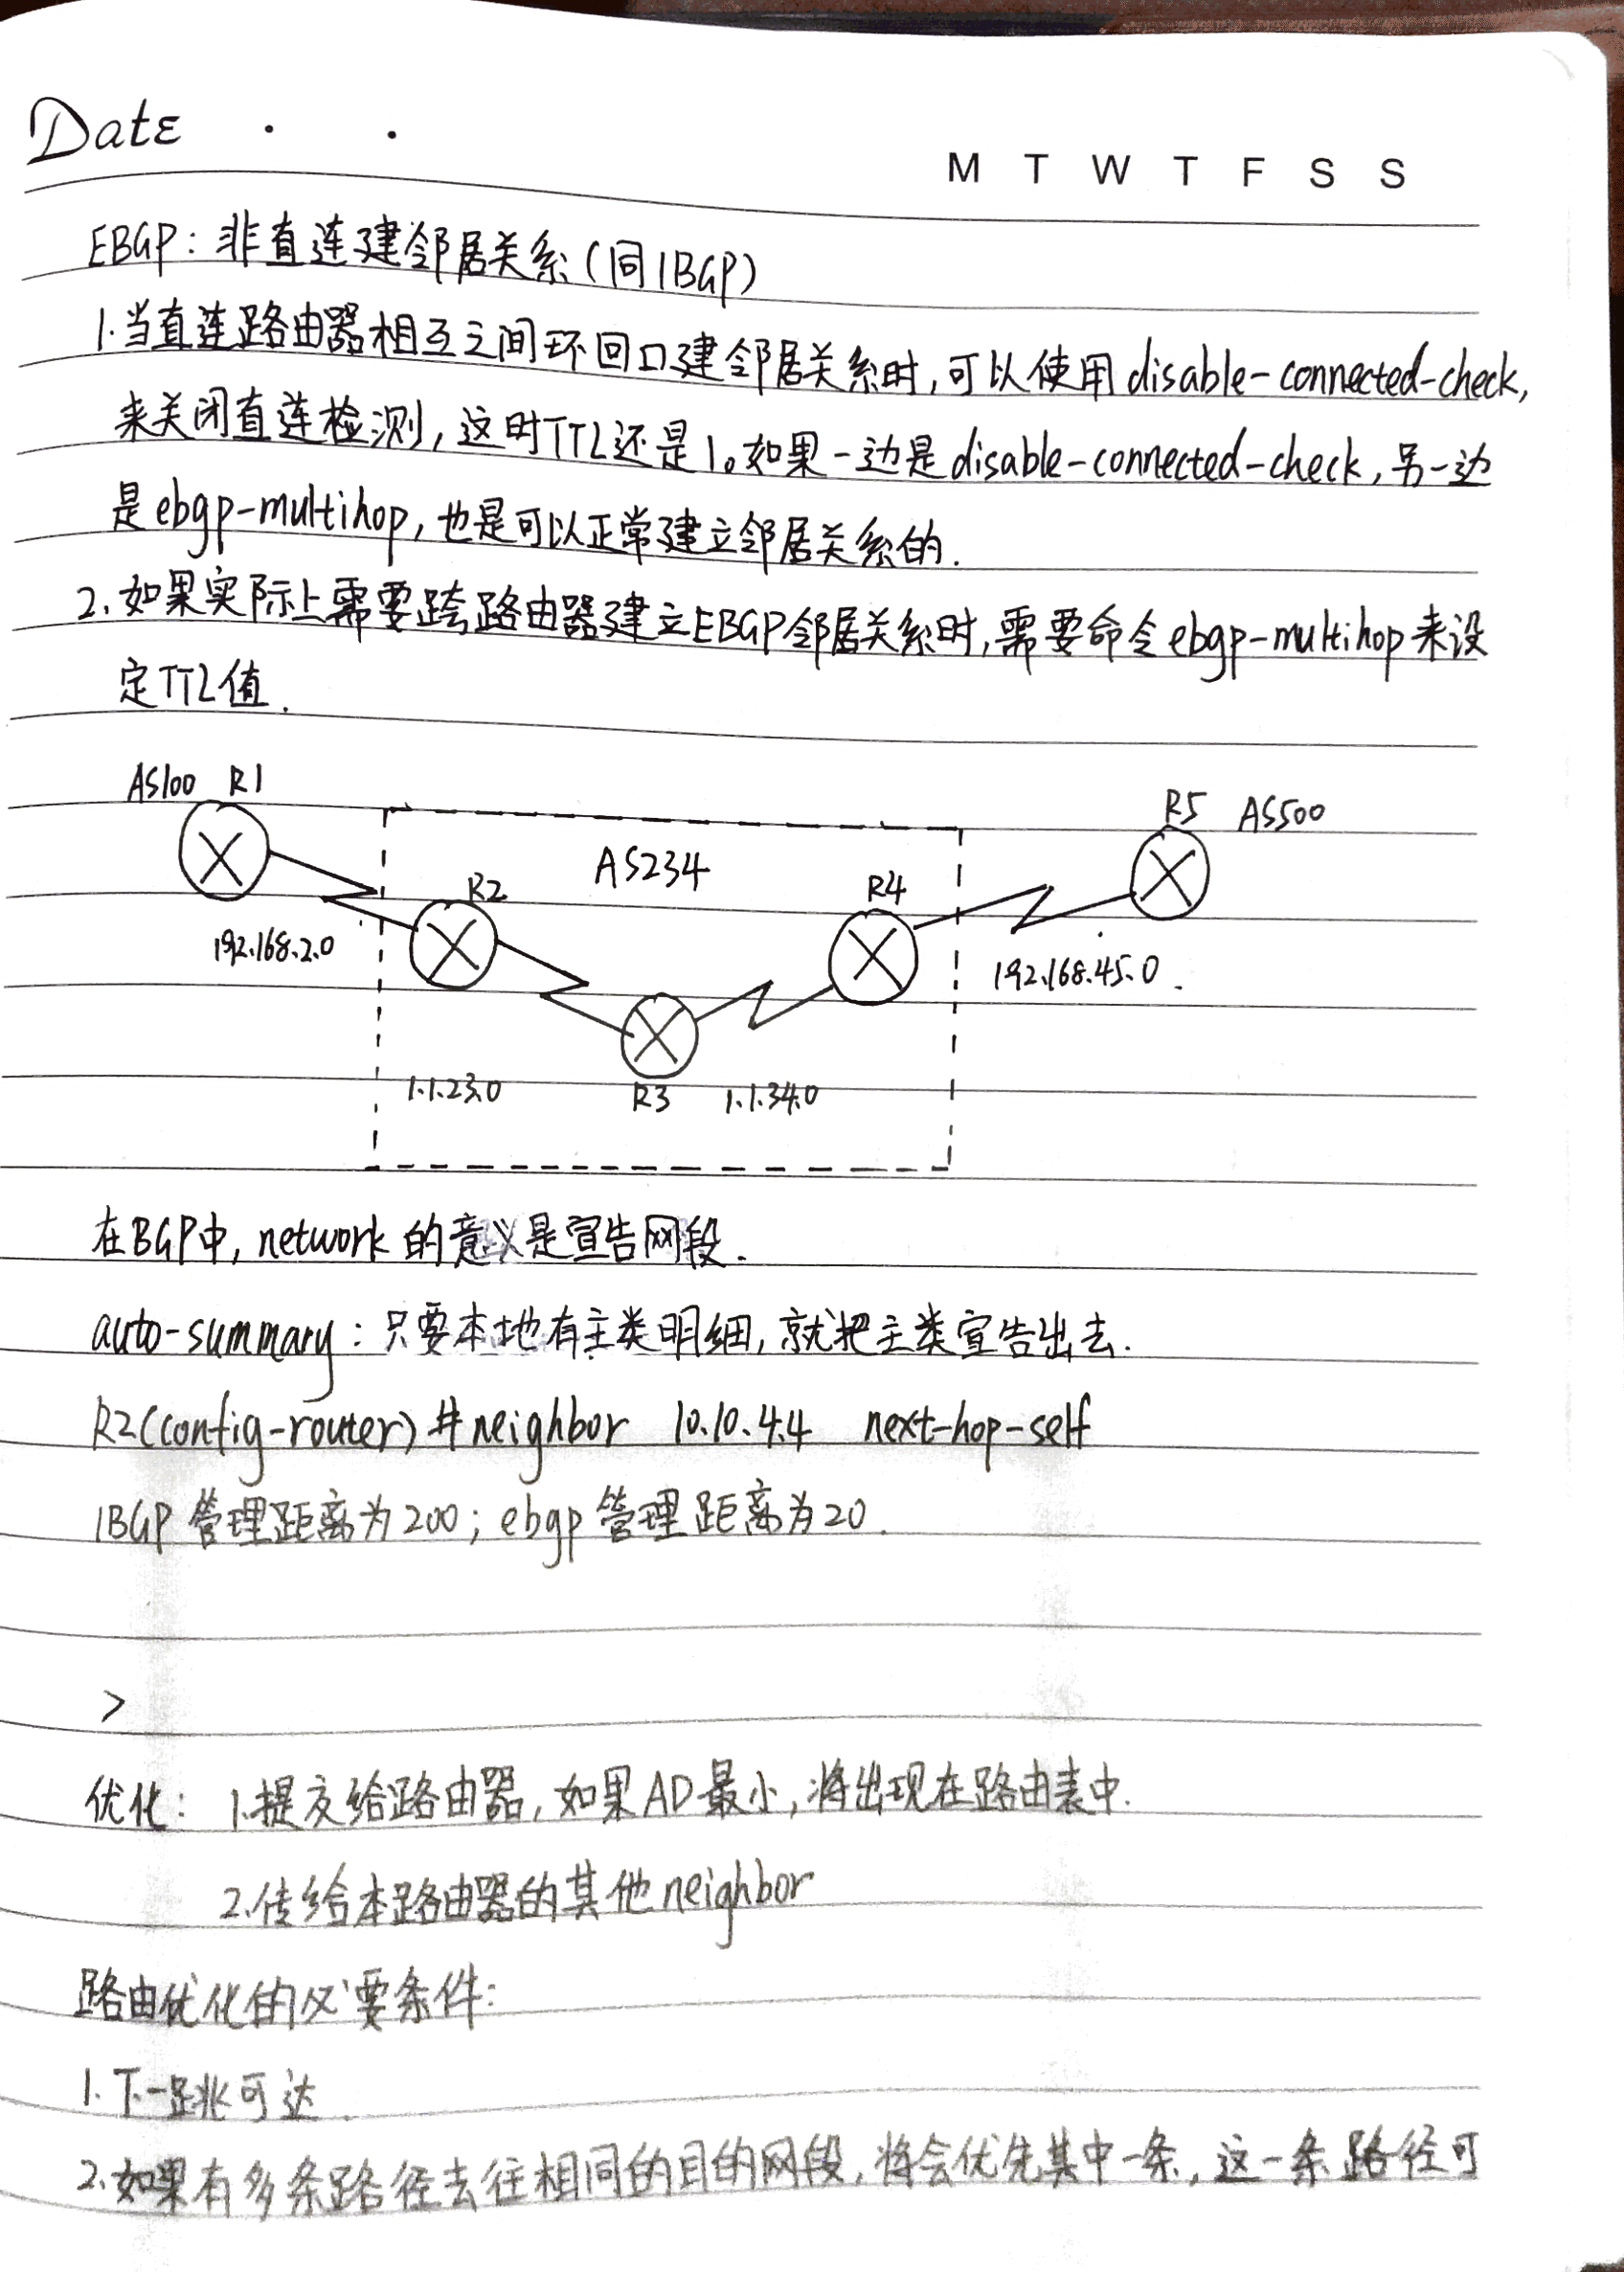 Date . .
M T W T F S S
EBGP：非直连建邻居关系（同IBGP）
1.当直连路由器相互之间环回口建邻居关系时，可以使用disable-connected-check，
来关闭直连检测，这时TTL还是1。如果一边是disable-connected-check，另一边
是ebgp-multihop，也是可以正常建立邻居关系的.
2.如果实际上需要跨路由器建立EBGP邻居关系时，需要命令ebgp-multihop来设
定TTL值.
AS100 R1
R5 AS500
AS234
R2
R4
192.168.2.0
192.168.45.0
1.1.23.0
R3
1.1.34.0
在BGP中，network的意义是宣告网段.
auto-summary：只要本地有主类明细，就把主类宣告出去.
R2(config-router)#neighbor 10.10.4.4 next-hop-self
IBGP管理距离为200；ebgp管理距离为20.
>
优化：1.提交给路由器，如果AD最小，将出现在路由表中.
2.传给本路由器的其他neighbor
路由优化的必要条件：
1.下一跳可达.
2.如果有多条路径去往相同的目的网段，将会优先其中一条，这一条路径可